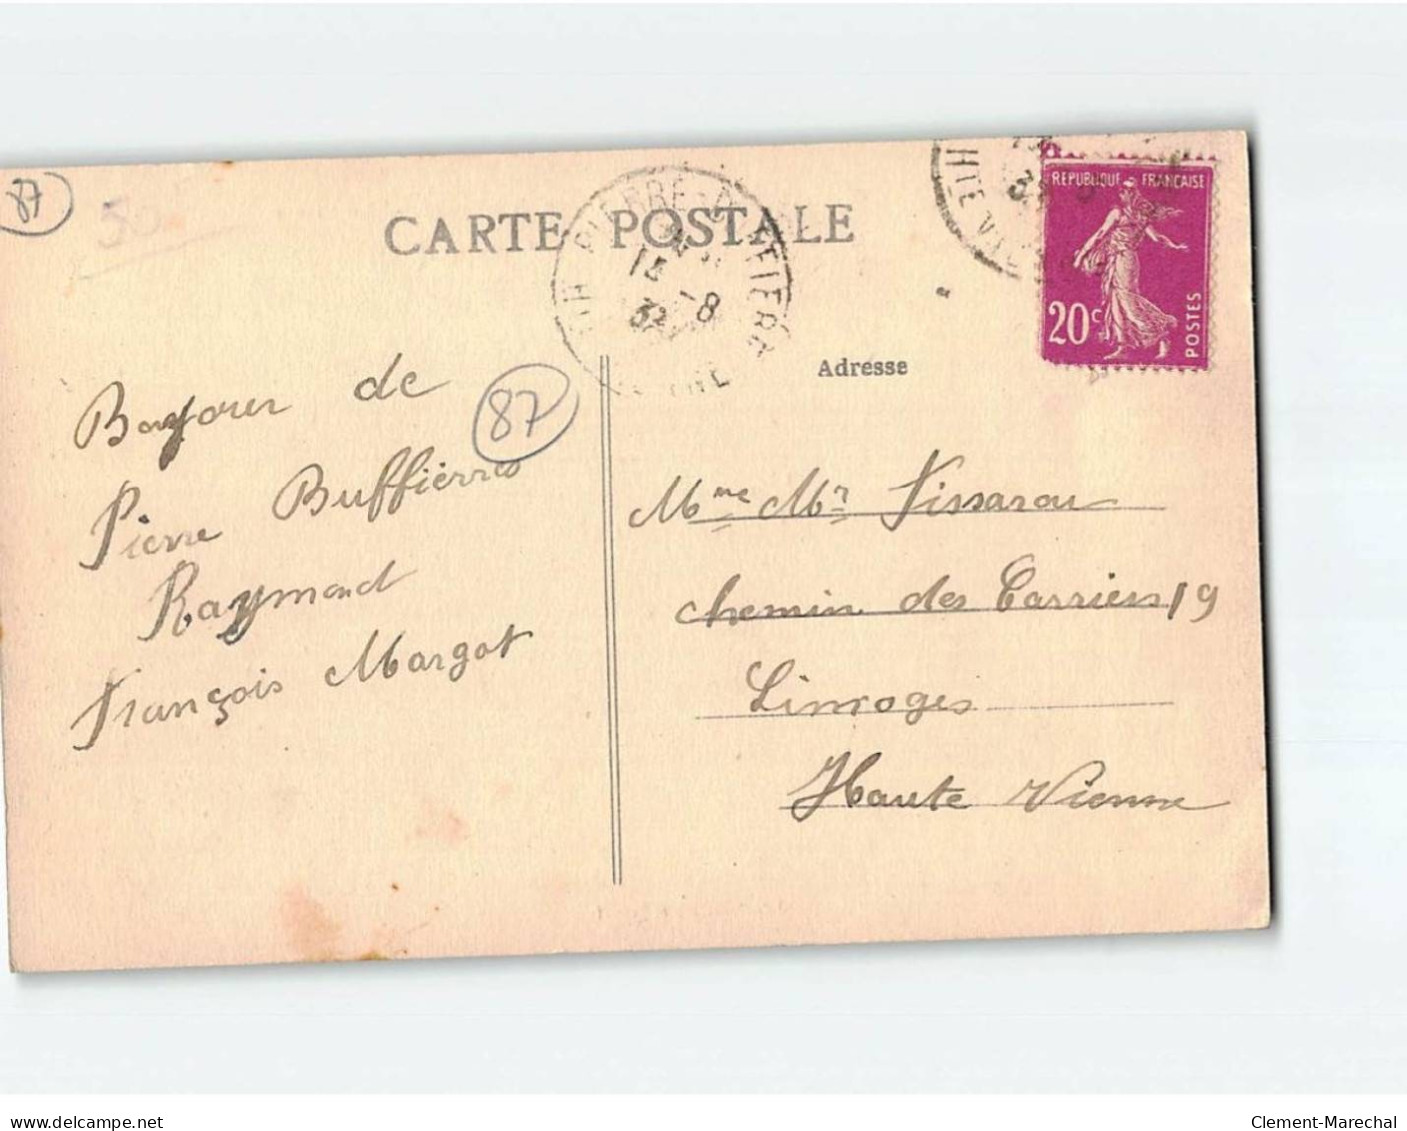 87
50
CARTE POSTALE
PIERRE-BUFFIERE
15 -8
HTE VIENNE
REPUBLIQUE FRANÇAISE
20c
POSTES
Adresse
87
de
Pierre Buffierres
Raymond
François Margot
Mme Mr Tissarou
chemin des Carriers 19
Limoges
Haute Vienne
www.delcampe.net
Clement-Marechal